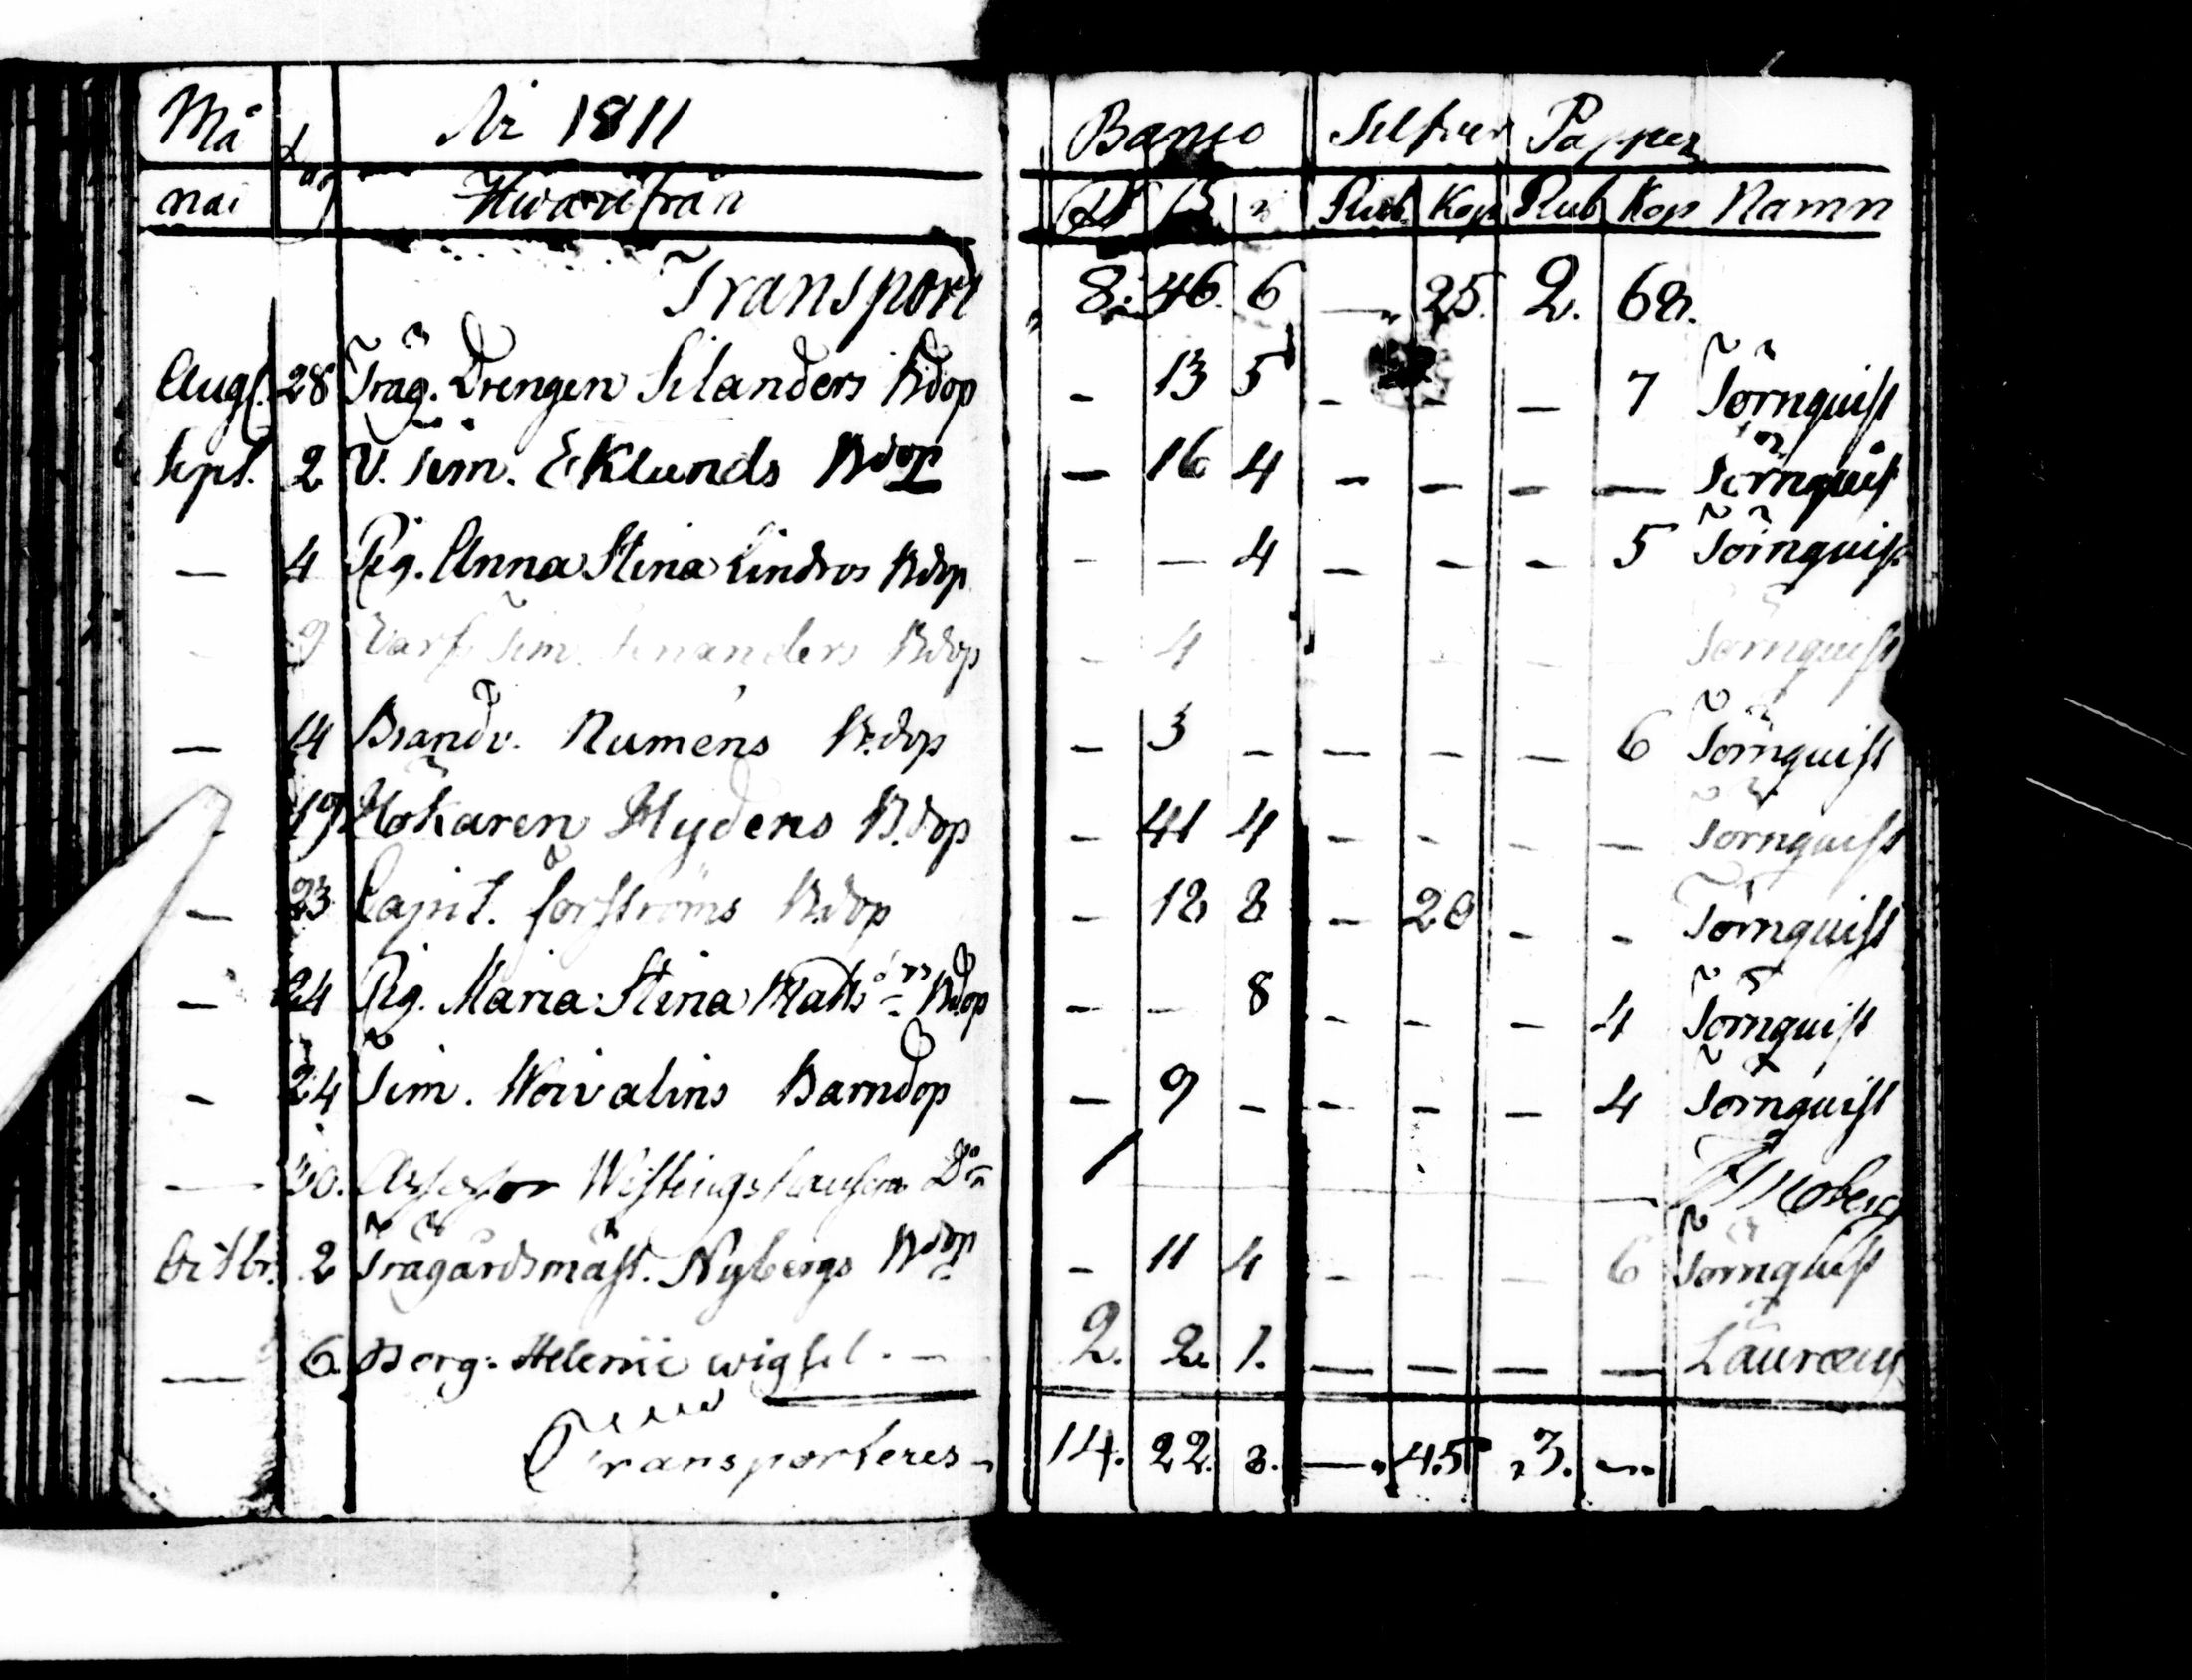 Må dag År 1811 Banco Silfver Papper
nat Hwarifrån Rd ß r Rub. Kop Rub Kop Namn
Transport 8. 46. 6 —. 25. 2. 68.
Augs. 28 Träg. Drengen Silanders Bdop - 13 5 - - — 7 Törnquist
Sept. 2 U. Tim. Eklunds Bdop — 16 4 - - - — Törnquist
— 4 Pig. Anna Stina Lindros Bdop - — 4 - - - 5 Törnquist
- 9 Varf Tim. Enanders Bdop - 4 - - - - Törnquist
— 14 Brandv. Numéns B.dop - 3 - - - - 6 Törnquist
- 19 Hökaren Hydens B.dop - 41 4 - - - — Törnquist
— 23 Capit. Forströms B.dop - 18 8 - 20 - - Törnquist
— 24 Pig. Maria Stina Matts dr Bdop - - 8 - - - 4 Törnquist
- 24 Tim. Woivalins Barndop — 9 - - - - 4 Törnquist
— 30. Assessor Do 1 Moberg
Octbr. 2 Trägårdsmäst. Nybergs Bdop - 11 4 - - - 6 Törnquist
— 6. Borg: wigsel. — 2. 2. 1. — — — — Lauræus
Transporteres - 14. 22. 8. —. 45 3. —.